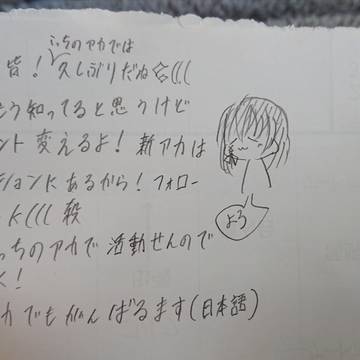 こっちのアカでは
皆！久しぶりだね☆(((
もう知ってると思うけど
ント変えるよ！新アカは
ションにあるから！フォロー
((( 殺
っちのアカで活動せんので
く！
カでもがんばります(日本語)
よろ